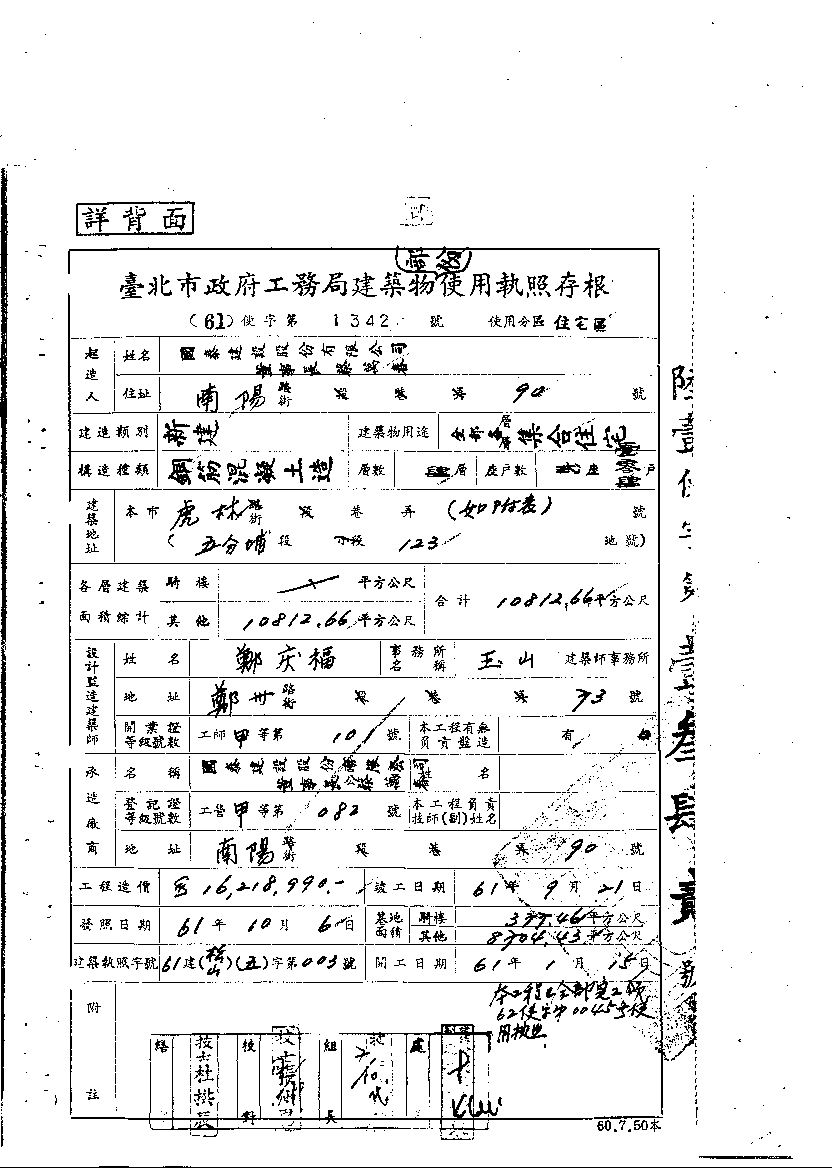 詳背面
部份
臺北市政府工務局建築物使用執照存根
(61)使字第 1342 號 使用分區 住宅區
起造人 姓名 國泰建設股份有限公司
董事長蔡萬春
住址 南陽路街 段 巷 弄 90 號
建造類別 新建 建築物用途 全部各層 集合住宅
構造種類 鋼筋混凝土造 層數 肆層 座戶數 座 壹零肆 戶
建築地址 本市 虎林路街 段 巷 弄 (如附表) 號
( 五分埔 段 小段 123 地號)
各層建築面積綜計 騎樓 平方公尺 合計 10812.66平方公尺
其他 10812.66平方公尺
設計監造建築師 姓名 鄭庆福 事務所名稱 玉山 建築師事務所
地址 鄭州路街 段 巷 弄 73 號
開業證等級號數 工師甲等第 101 號 本工程有無負責監造 有
承造廠商 名稱 國泰建設股份有限公司
董事長 姓名
登記證等級號數 工營甲等第 082 號 本工程負責技師(副)姓名
地址 南陽路街 段 巷 弄 90 號
工程造價 16,218,990.- 竣工日期 61年9月21日
發照日期 61年10月6日 基地面積 騎樓 377.46平方公尺
其他 8704.43平方公尺
建築執照字號 61建(松山)(五)字第003號 開工日期 61年1月15日
附註 本工程已全部完工領
62使字第0045号使
用执照
繕 技士杜 校對 技士 組長 處
60.7.50本
陸壹使字第壹叁肆貳號